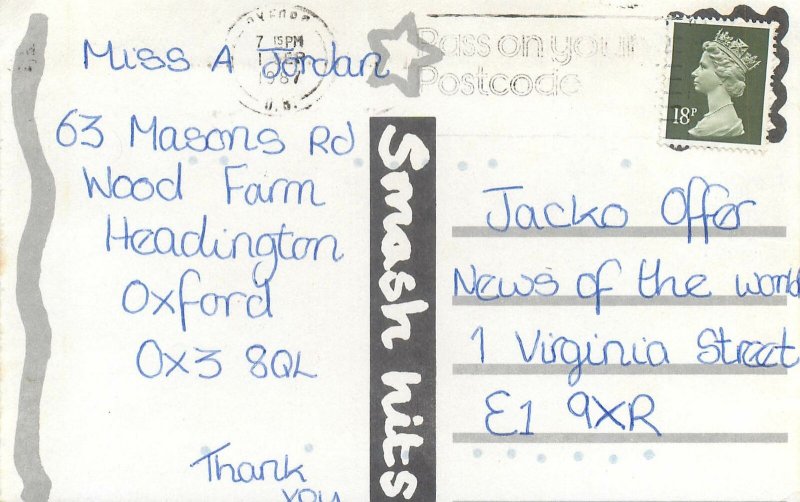 Miss A Jordan
63 Masons Rd
Wood Farm
Headington
Oxford
OX3 8QL
Thank
you
Smash hits
7 15PM
1987
Pass on your
Postcode
18P
Jacko Offer
News of the world
1 Virginia Street
E1 9XR